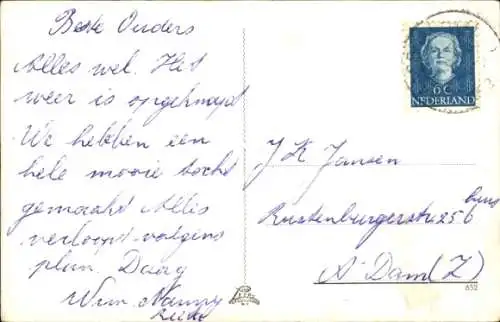 Beste Ouders
Alles wel. Het
weer is opgeknapt
We hebben een
hele mooie tocht
gemaakt Alles
verloopt volgens
plan. Daag
Wim Nanny
6 C
NEDERLAND
J K Jansen
Rustenburgerstr 256
huis
A'Dam (Z)
832